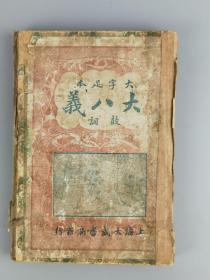 大字足本
大八義
鼓詞
上海大成書局發行